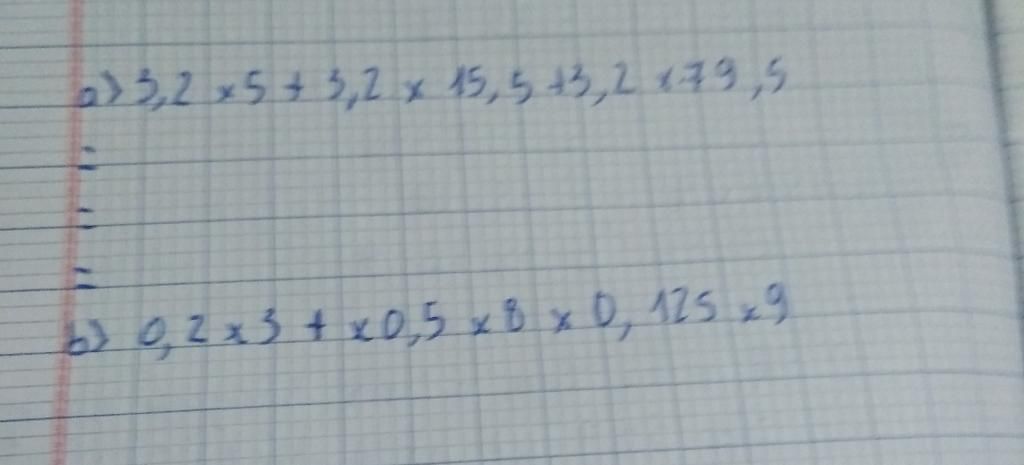 a) 3,2 × 5 + 3,2 × 15,5 + 3,2 × 79,5
=
=
=
b) 0,2 × 3 + × 0,5 × 8 × 0,125 × 9